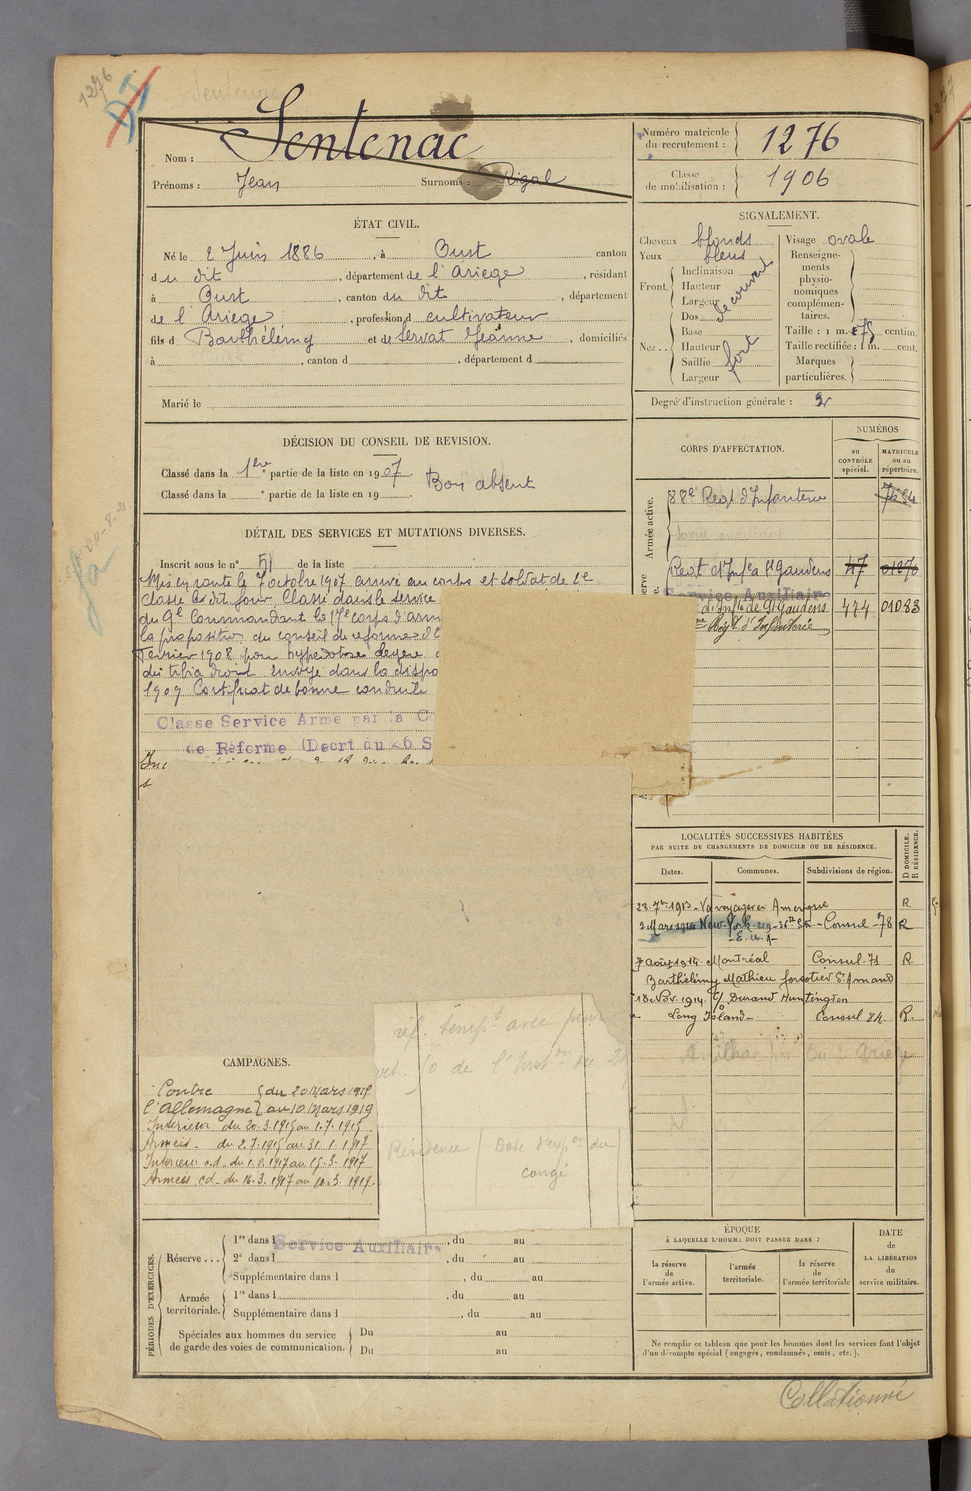 1276
Sentenac
Nom : Sentenac
Prénoms : Jean Surnoms : Rigal
Numéro matricule du recrutement : 1276
Classe de mobilisation : 1906
ÉTAT CIVIL.
Né le 2 Juin 1886, à Oust canton
du dit, département de l'Ariège, résidant
à Oust, canton du dit, département
de l'Ariege, profession d cultivateur
fils d Barthélémy et de Servat Jeanne, domiciliés
à , canton d , département d
Marié le
SIGNALEMENT.
Cheveux blonds
Yeux bleus
Front. Inclinaison
Hauteur
Largeur
découvert
Nez... Dos
Base
Hauteur
Saillie
Largeur
fort
Visage ovale
Renseignements physionomiques complémentaires.
Taille : 1 m. 75 centim.
Taille rectifiée : 1 m. cent.
Marques particulières.
Degré d'instruction générale : 3
DÉCISION DU CONSEIL DE REVISION.
Classé dans la 1ère partie de la liste en 1907. Bon absent
Classé dans la e partie de la liste en 19
CORPS D'AFFECTATION.
NUMÉROS
au CONTRÔLE spécial.
MATRICULE ou au répertoire.
Armée active.
88e Regt d'Infanterie 7634
Regt d'Infie St Gaudens 47 01270
Service Auxiliaire
d'Infie de St Gaudens 474 01083
Régt d'Infanterie
DÉTAIL DES SERVICES ET MUTATIONS DIVERSES.
Inscrit sous le n° 51 de la liste
Mis en route le 7 octobre 1907 arrivé au corps et soldat de 2e
Classe le dit jour. Classé dans le service
du Gal Commandant le 17e corps d'arm
la proposition du conseil de réforme d
Fevrier 1908 pour hyperostose légère
du tibia droit envoyé dans la dispo
1909 Certificat de bonne conduite
Classe Service Armé par la C
de Réforme (Decrt du 26 S
LOCALITÉS SUCCESSIVES HABITÉES
PAR SUITE DE CHANGEMENTS DE DOMICILE OU DE RÉSIDENCE.
Dates. Communes. Subdivisions de région. D DOMICILE. R RÉSIDENCE.
28 7bre 1913 - Va voyager en Amérique R.
2 Mars 1914 New-York - 219 - 36th St. - Consul - 78 R
- E. U. A -
7 Août 1914 Montréal Consul 71 R.
Barthélémy Mathieu forestier St Amand
18 Nov. 1914 c/o Durand Huntington
Long Island - Consul 84 R.
réf. tempre avec pens
art. 10 de l'Inston du 2
Résidence Date d'expon du
congé
CAMPAGNES.
Contre du 20 Mars 1915
l'Allemagne au 10 Mars 1919
Intérieur du 20.3.1915 au 1.7.1915
Armées - du 2.7.1915 au 31.1.1917
Intérieur cd - du 1.2.1917 au 15.3.1917
Armées cd - du 16.3.1917 au 10.3.1919.
PÉRIODES D'EXERCICES.
Réserve... 1re dans l , du au
Service Auxiliaire
2e dans l , du au
Supplémentaire dans l , du au
Armée territoriale. 1re dans l , du au
Supplémentaire dans l , du au
Spéciales aux hommes du service de garde des voies de communication. Du au
Du au
ÉPOQUE
À LAQUELLE L'HOMME DOIT PASSER DANS :
la réserve de l'armée active.
l'armée territoriale.
la réserve de l'armée territoriale
DATE DE LA LIBÉRATION du service militaire.
Ne remplir ce tableau que pour les hommes dont les services font l'objet
d'un décompte spécial (engagés, condamnés, omis, etc.).
Collationné